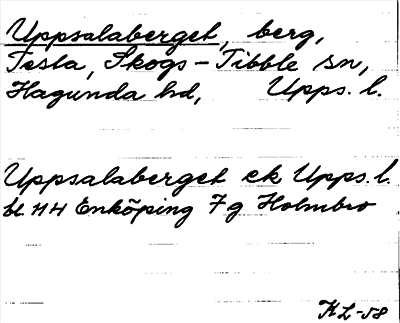 Uppsalaberget, berg,
Testa, Skogs-Tibble sn,
Hagunda hd, Upps. l.
Uppsalaberget ek Upps. l.
bl. 114 Enköping 7 g Holmbro
KL-58